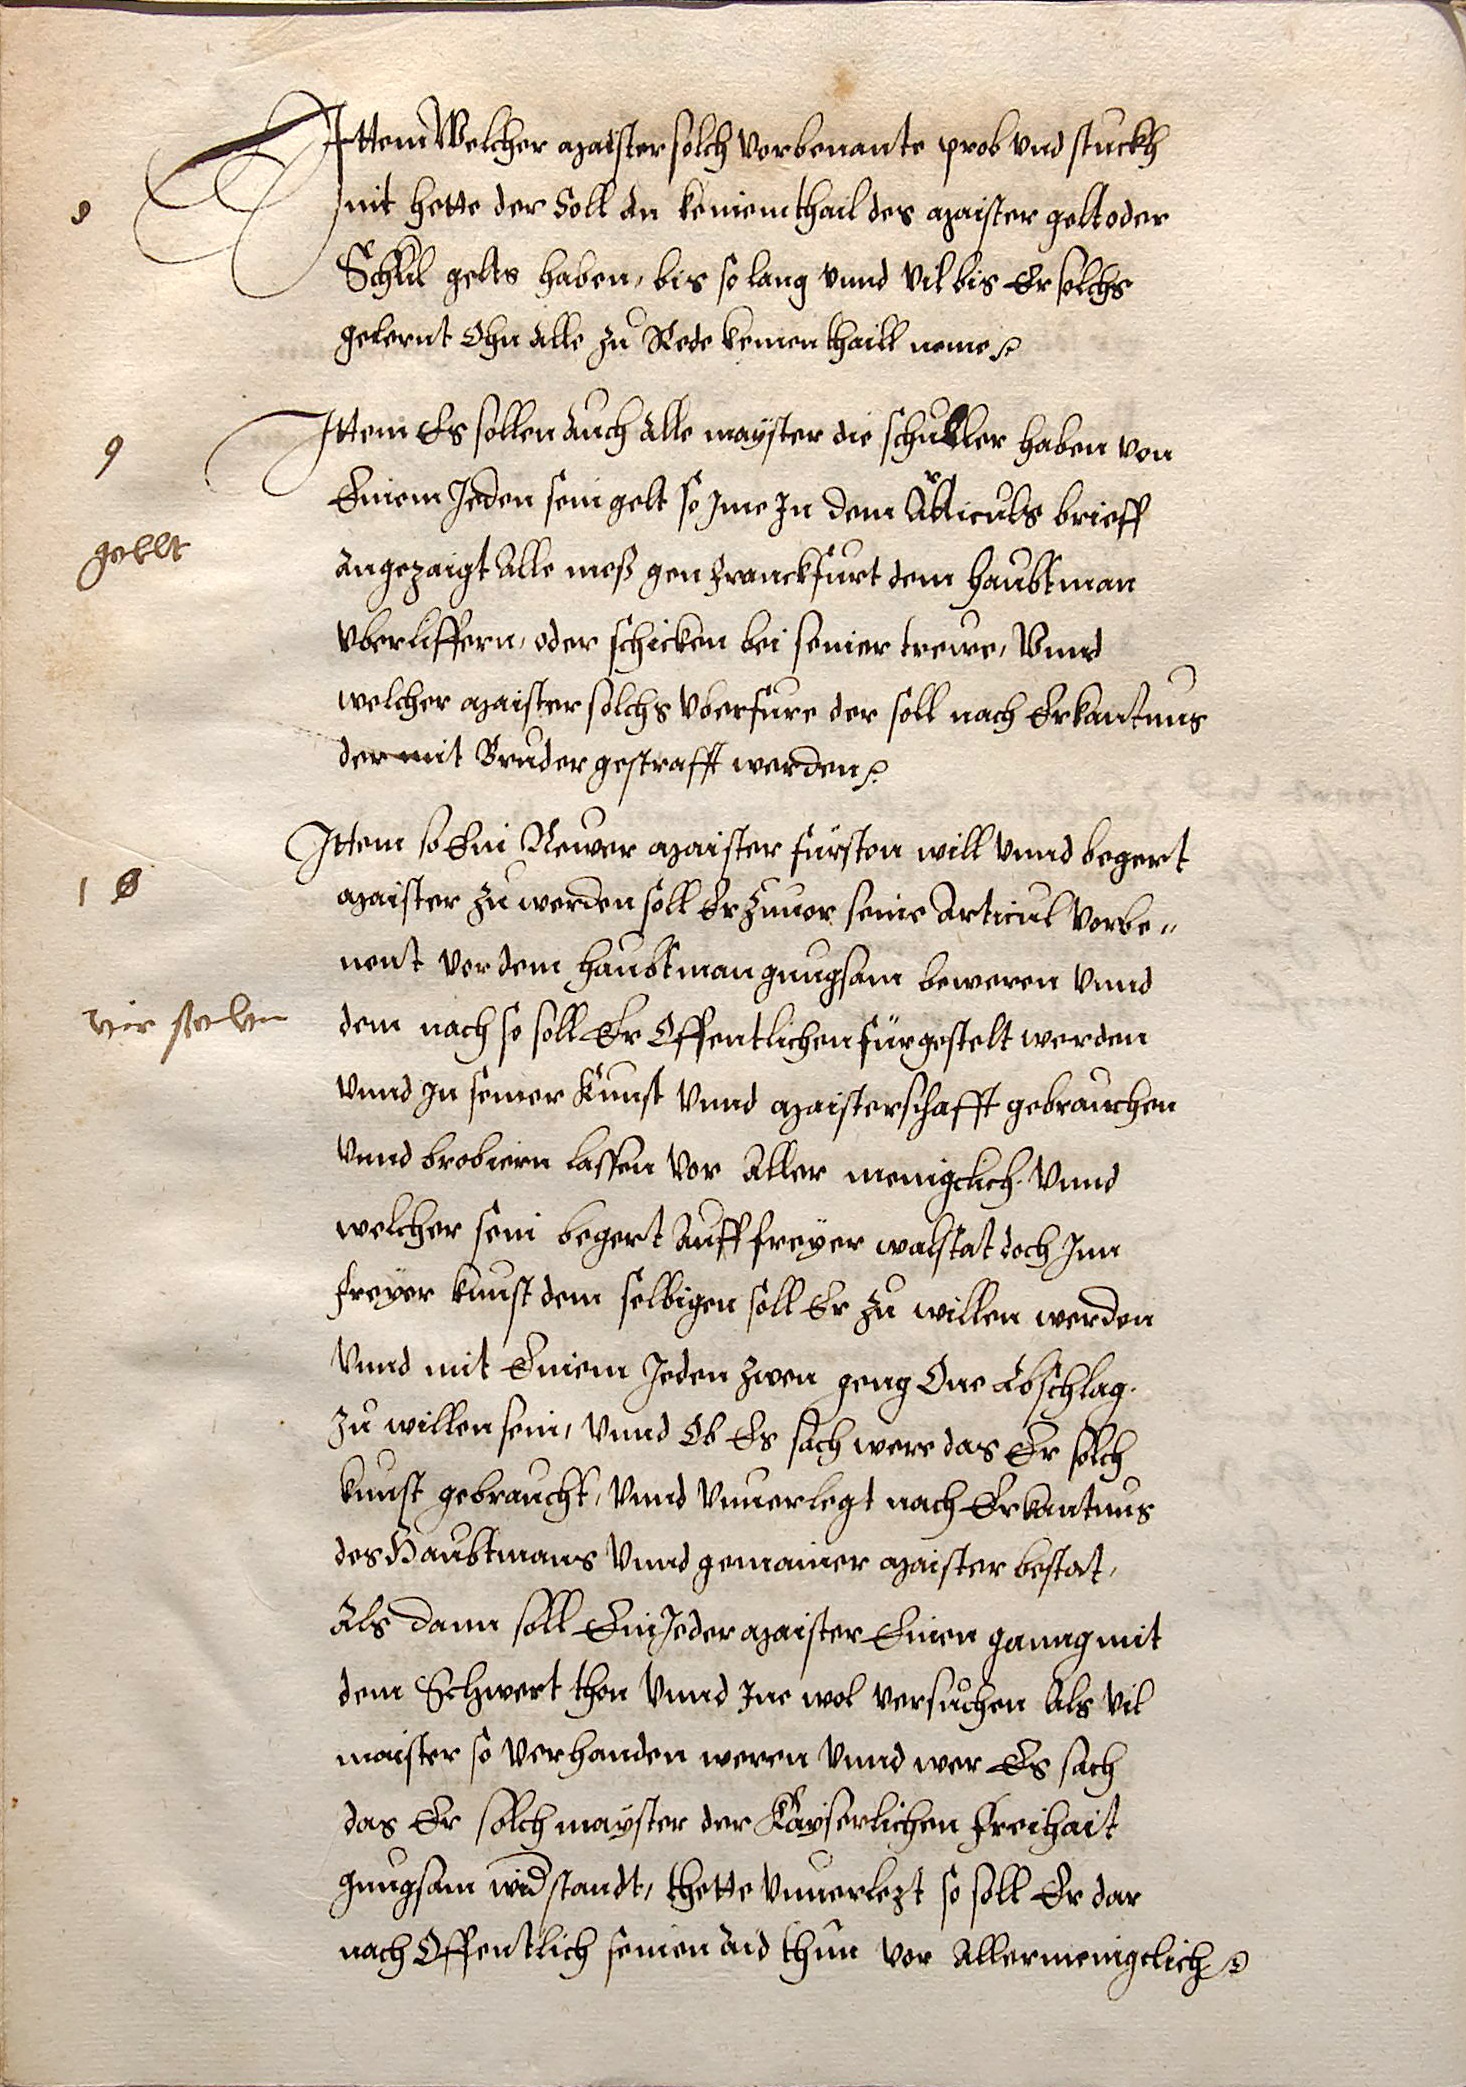 Ittem Welcher maister solch vorbenante prob vnd stuckh
8
nit hette der Soll an keinem thail des maister gelt oder
Schůl gelts haben, bis so lang vnnd vil bis Er solchs
gelernt Ohn alle zů Rede keinen thaill neme
Ittem Es sollen Auch Alle mayster die schuller haben von
9
Einem Jeden sein gelt so Jme In dem Articuls brieff
gellt
Angezaigt Alle mesß gen Franckfurt dem haubtman
vberliffern, oder schicken bei seiner trewe, Vnnd
welcher maister solchs vberfure der soll nach Erkantnus
der mit Bruder gestrafft werden
Ittem so Ein Newer maister fürsten will vnnd begert
10
maister zu werden soll Er zuuor seine Articul vorbe„
nent vor dem haubtman gnugsam beweren vnnd
dem nach so soll Er Offentlichen fürgestelt werden
vnnd In seiner Kunst vnnd maisterschafft gebrauchen
vnnd brobiern lassen vor Aller menigclich. Vnnd
welcher sein begert Auff freyer walstat doch Inn
freyer kunst dem selbigen soll Er zů willen werden
Vnnd mit Einem Jeden zwen geng One Abschlag.
zu willen sein, Vnnd Ob Es sach were das Er solch
kunst gebraucht, Vnnd Vnuerlegt nach Erkantnus
des Haubtmans Vnnd gemainer maister bestat,
Als dann soll Ein Jeder maister Einen ganng mit
dem Schwert thon Vnnd Ine wol versuchen Als vil
maister so Verhanden weren Vnnd wer Es sach
das Er solch mayster der Kayserlichen freihait
gnugsam widstandt, thette Vnuerlezt so soll Er dar
nach Offentlich seinen Aid thun vor Allermenigclich